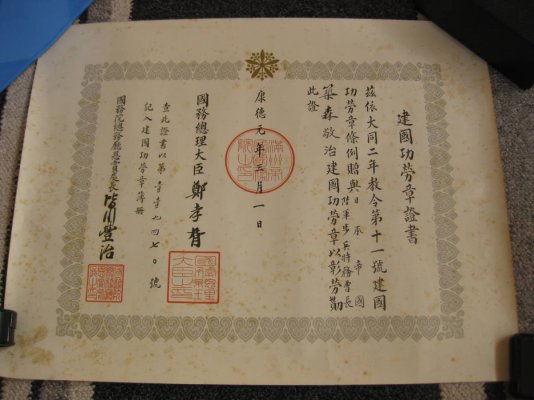 建國功勞章證書
茲依大同二年教令第十一號建國
功勞章條例贈與日本帝國陸軍步兵特務曹長
築森敬治建國功勞章以彰勞勩
此證
康德元年三月一日
國務總理大臣 鄭孝胥
查此證書以第壹壹九四七〇號
記入建國功勞章簿冊
國務院總務廳恩賞處長 皆川豐治